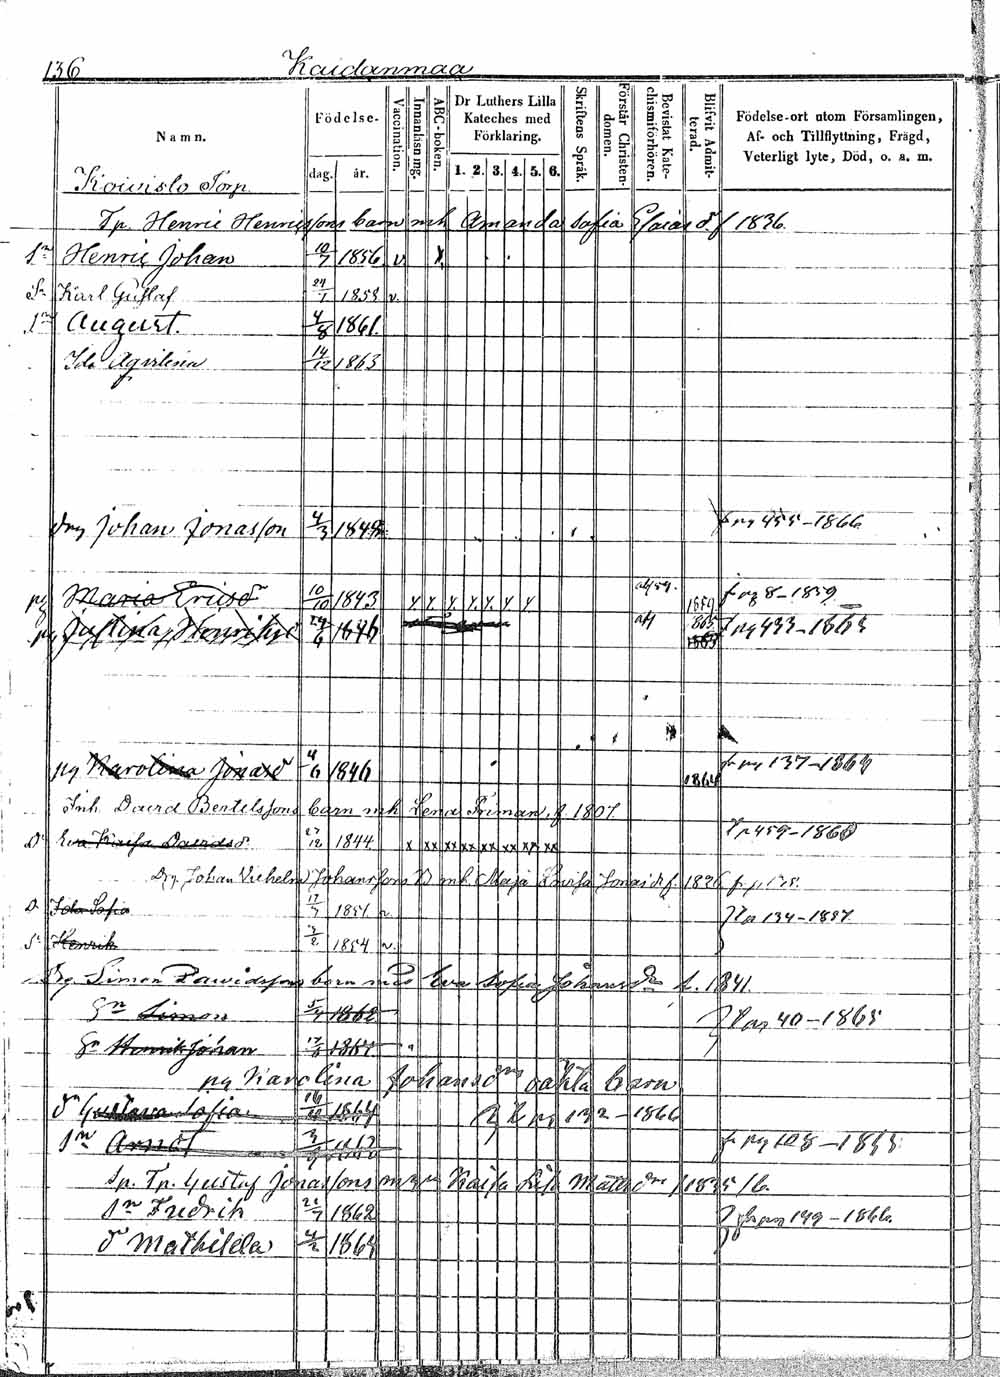 136 Kaidanmaa
Namn.
Födelse-
dag. år.
Vaccination.
Innanläsning.
ABC-boken.
Dr Luthers Lilla
Kateches med
Förklaring.
1. 2. 3. 4. 5. 6.
Skriftens Språk.
Förstår Christen-
domen.
Bevistat Kate-
chismiförhören.
Blifvit Admit-
terad.
Födelse-ort utom Församlingen,
Af- och Tillflyttning, Frägd,
Veterligt lyte, Död, o. s. m.
Koivisto Torp
Tp. Henric Henricssons barn mh Amanda Sofia Esaiasd. f 1836.
Sn Henric Johan 10/7 1856 v x
Sn Karl Gustaf 1858 v.
Sn August. 4/8 1861.
Ida 14/12 1863
Drg Johan Jonasson 4/3 1849 f pg 455-1866
pg Maria Ericsd 10/10 1843 y y y y y y y 1859 f pg 8-1859
pg Justina 1846 f pg 433-1863
pg Karolina Jonasd 4/6 1846 1864 fr pg 137-1863
Inh. David Bertelssons barn mh Lena Friman, f. 1807.
D. Eva Kaisa Davidsd. 27/12 1844 x xx xx xx xx xx xx xx 459-1860
Drg. Johan Vilhelm Johanssons B mh. Maja Lovisa Jonasd f. 1826
D. Ida Sofia 17/7 1851 v. 134-1857
S. Henrik 3/2 1854 v.
Drg. Simon Davidssons barn med Eva Sofia Johansdr f. 1841.
Sn Simon 5/7 1862 pg 40-1865
Sn Henrik Johan 1864
pg Karolina Johansdrs oäkta barn
d Gustava Sofia 1864 pg 132-1866
Sn Arnot fr pg 108-1865
Sp. Tp. Gustaf Jonassons m Kaisa Lisa Mattsdr f 1835 b.
Sn Fredrik 1862 pg 149-1866.
d Mathilda 4/2 1864